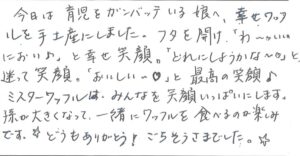 今日は育児をガンバッテいる娘へ、幸せワッフ
ルを手土産にしました。フタを開け「わ〜いい
におい♪」と幸せ笑顔。「どれにしようかな〜」と
迷って笑顔。「おいしい〜♡」と最高の笑顔♪
ミスターワッフルは、みんなを笑顔いっぱいにします。
孫が大きくなって、一緒にワッフルを食べるのが楽しみ
です。☆どうもありがとう！ごちそうさまでした。☆